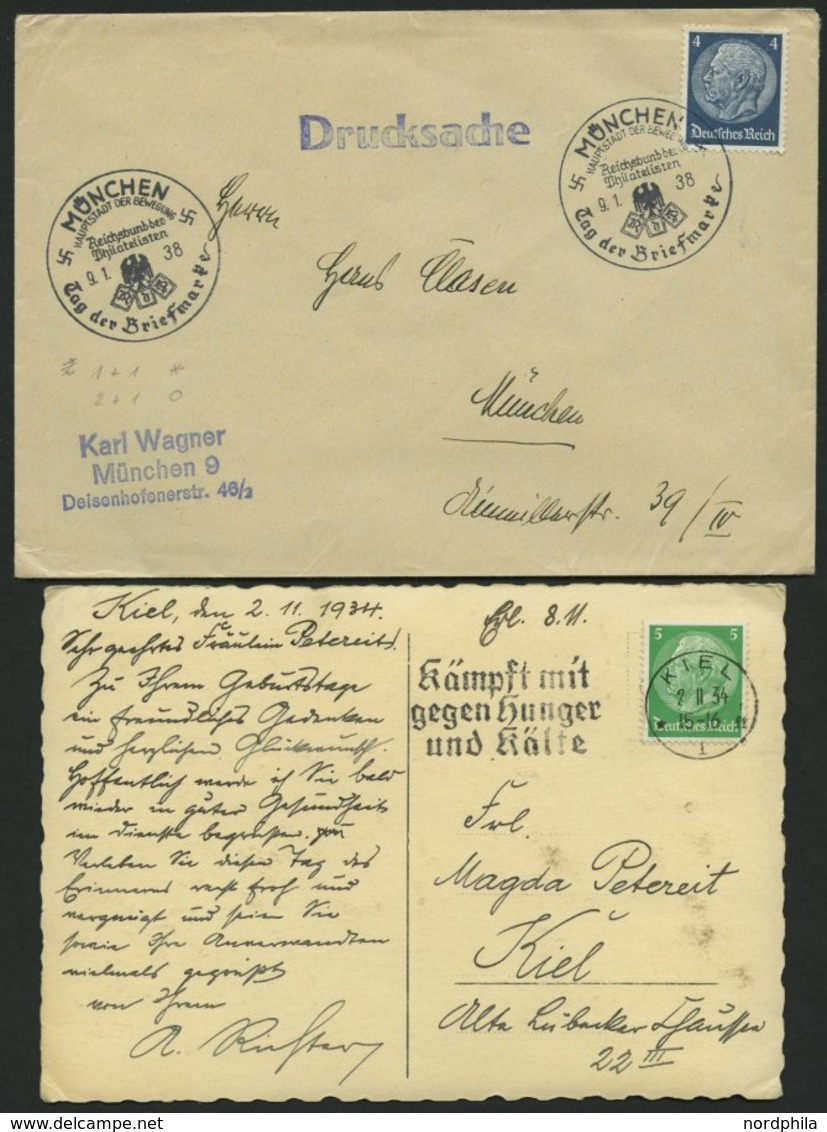 4 4
Deutsches Reich
Drucksache
MÜNCHEN
HAUPTSTADT DER BEWEGUNG
Reichsbund der
Philatelisten
9.1. 38
R d P
Tag der Briefmarke
MÜNCHEN
HAUPTSTADT DER BEWEGUNG
Reichsbund der
Philatelisten
9.1. 38
Tag der Briefmarke
Herrn
Hans Clasen
München
39/IV
1+1 *
2+1 O
Karl Wagner
München 9
Deisenhofenerstr. 46/2
Kiel, den 2.11.1934.
Sehr geehrtes Fräulein Petereit!
Zu Ihrem Geburtstage
ein freundliches Gedenken
und herzlichen Glückwunsch.
Hoffentlich werde ich Sie bald
wieder in guter Gesundheit
im Dienste begrüßen.
Verleben Sie diesen Tag des
Erinnerns recht froh und
vergnügt und seien Sie
sowie Ihre Anverwandten
vielmals gegrüßt
von Ihrem
A. Richter
8.11.
Kämpft mit
gegen Hunger
und Kälte
5 5
Deutsches Reich
KIEL
2 11 34
15-16
1
Frl.
Magda Petereit
Kiel
Alte Lübecker Chaussee
22 III
www.nordphila.com